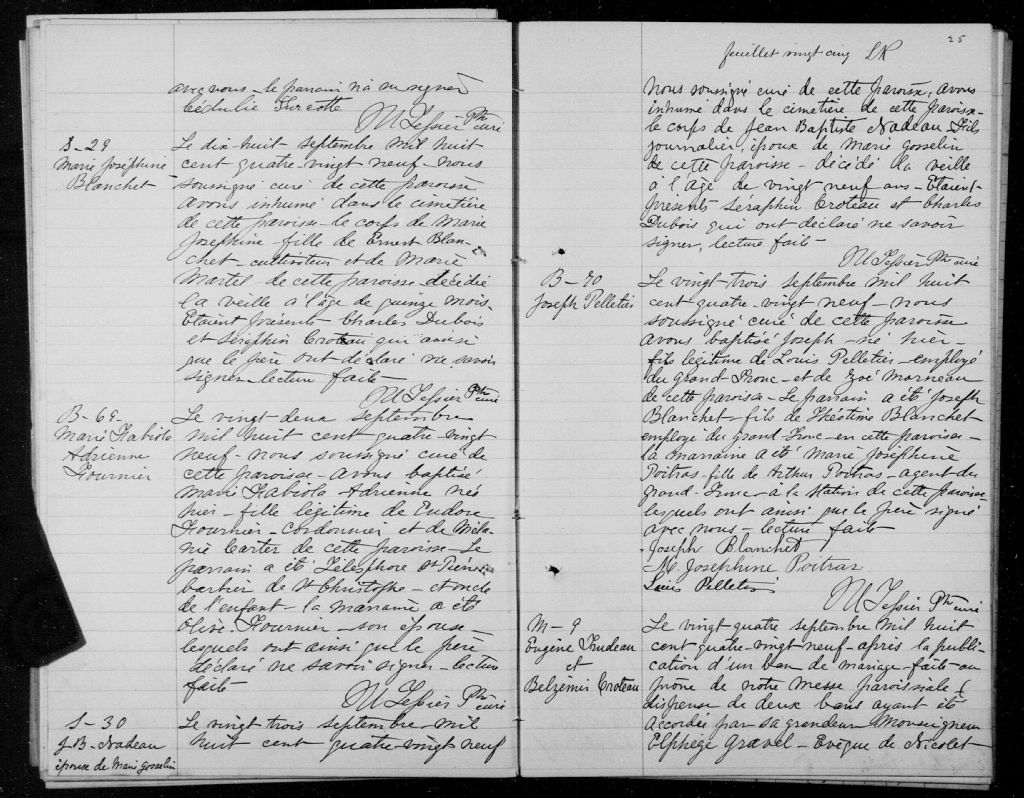 avec nous - le parrain n'a su signer
Cédulie Turcotte
M Tessier Ptre curé
S - 29
Marie Joséphine
Blanchet
Le dix-huit septembre mil huit
cent quatre-vingt neuf - nous
soussigné curé de cette paroisse
avons inhumé dans le cimetière
de cette paroisse - le corps de Marie
Josephine - fille de Ernest Blan-
chet - cultivateur et de Marie
Martel de cette paroisse - décédée
la veille à l'âge de quinze mois
Etaient présents - Charles Dubois
et Séraphin Croteau qui ainsi
que le père ont déclaré ne savoir
signer - lecture faite
M Tessier Ptre curé
B - 69 -
Marie Fabiola
Adrienne
Fournier
Le vingt-deux septembre
mil huit cent quatre-vingt
neuf - nous soussigné curé de
cette paroisse - avons baptisé
Marie Fabiola Adrienne née
hier - fille légitime de Eudore
Fournier - cordonnier et de Méla-
nie Carter de cette paroisse - Le
parrain a été Télesphore St Pierre
barbier de St Christophe - et oncle
de l'enfant - la marraine a été
Olive Fournier - son épouse -
lesquels ont ainsi que le père
déclaré ne savoir signer - lecture
faite
M Tessier Ptre curé
S - 30
J-B - Nadeau
époux de Marie Gosselin
Le vingt trois septembre mil
huit cent quatre-vingt neuf
25
feuillet vingt cinq
nous soussigné curé de cette paroisse, avons
inhumé dans le cimetière de cette paroisse
le corps de Jean Baptiste Nadeau Fils
journalier, époux de Marie Gosselin
de cette paroisse - décédé la veille
à l'âge de vingt neuf ans - Etaient
présents - Séraphin Croteau et Charles
Dubois qui ont déclaré ne savoir
signer, lecture faite -
M Tessier Ptre curé
B - 70
Joseph Pelletier
Le vingt-trois septembre mil huit
cent quatre-vingt neuf - nous
soussigné curé de cette paroisse
avons baptisé Joseph - né hier -
fils légitime de Louis Pelletier - employé
du grand Tronc - et de Zoé Morneau
de cette paroisse - Le parrain a été Joseph
Blanchet - fils de Théotime Blanchet
employé du grand-Tronc - en cette paroisse -
la marraine a été Marie Joséphine
Poitras - fille de Arthur Poitras - agent du
grand-Tronc - à la station de cette paroisse
lesquels ont ainsi que le père signé
avec nous - lecture faite
Joseph Blanchet
M. Josephine Poitras
Louis Pelletier
M Tessier Ptre curé
M - 9
Eugène Trudeau
et
Belzémir Croteau
Le vingt quatre septembre mil huit
cent quatre-vingt neuf - après la publi-
cation d'un ban de mariage - faite au
prône de notre messe paroissiale (
dispense de deux bans ayant été
accordée par sa grandeur Monseigneur
Elphège Gravel - Evêque de Nicolet -